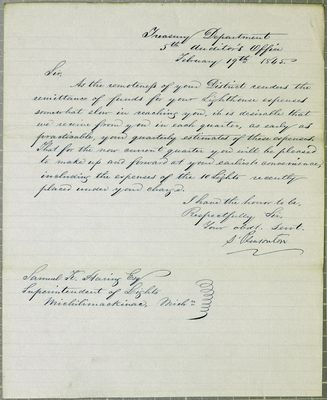 Treasury Department
5th Auditor's Office
February 19th 1845.
Sir,
As the remoteness of your District renders the
remittance of funds for your Lighthouse expenses
somewhat slow in reaching you, it is desirable that
we receive from you in each quarter, as early as
practicable, your quarterly estimates of these expenses.
That for the now current quarter you will be pleased
to make up and forward at your earliest convenience,
including the expenses of the 10 Lights recently
placed under your charge.
I have the honor to be,
Respectfully Sir,
Your obdt. Servt.
S. Pleasonton
Samuel K. Haring Esq
Superintendent of Lights
Michilimackinac, Mich